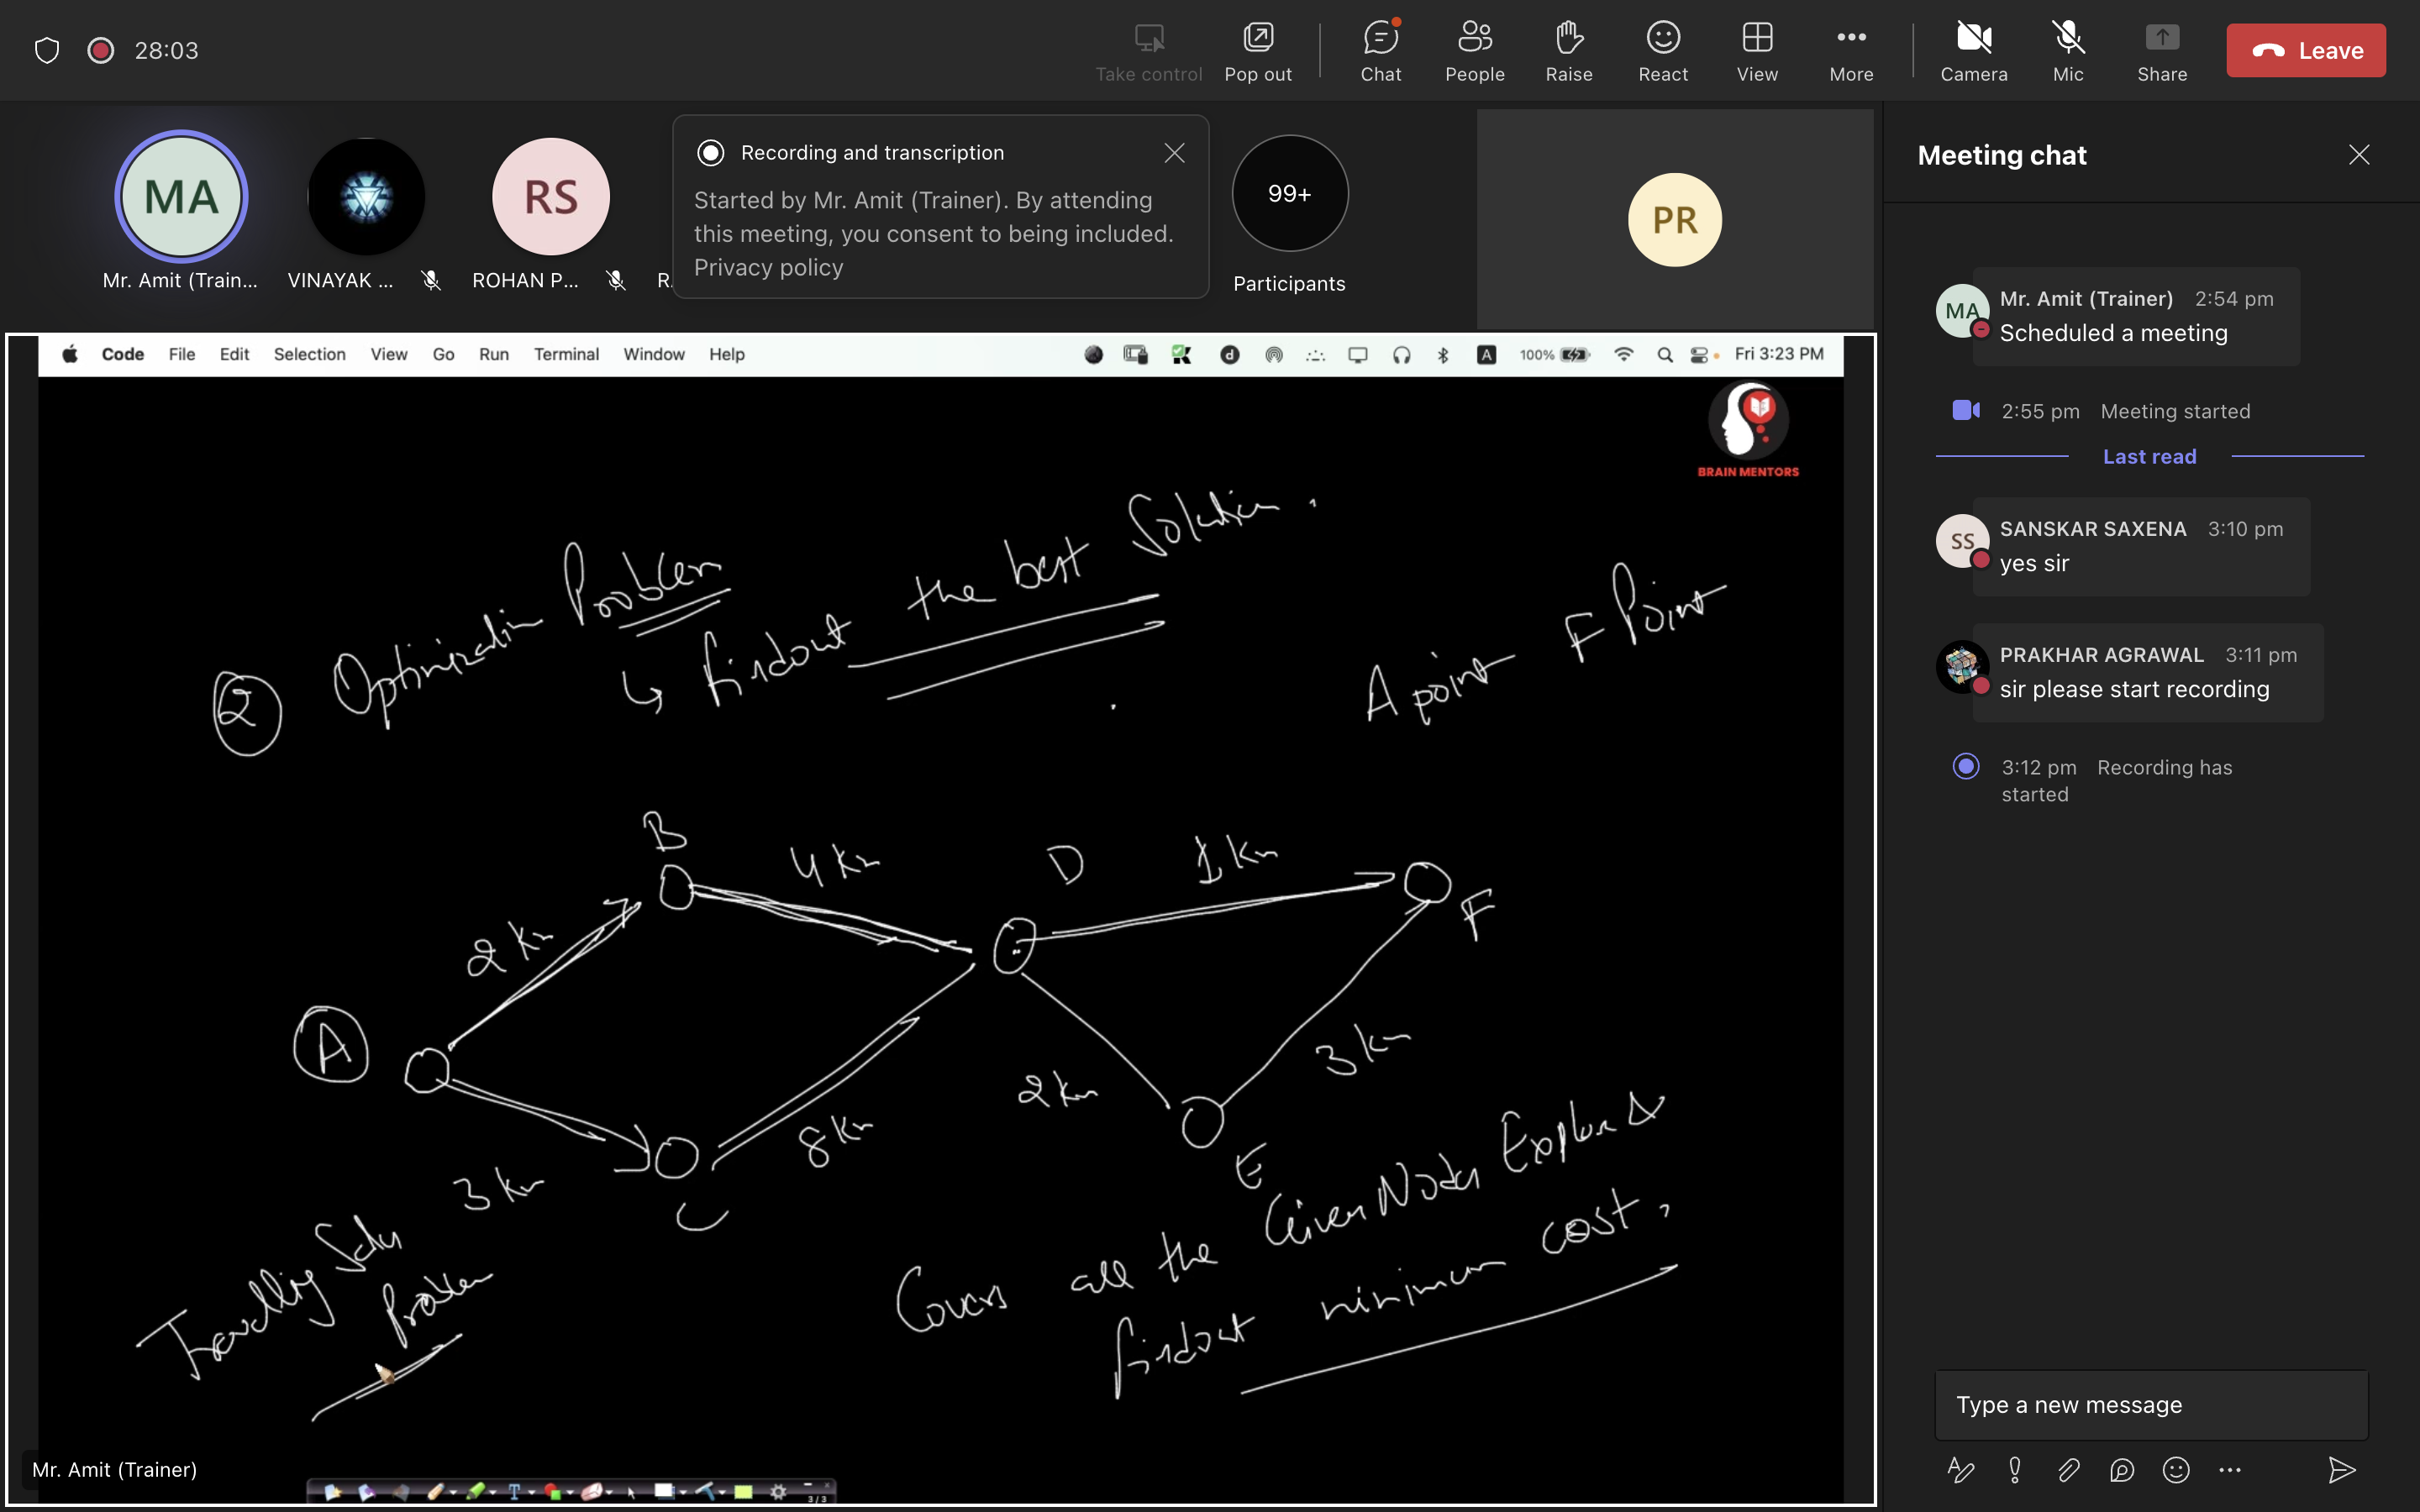 28:03
Take control
Pop out
Chat
People
Raise
React
View
More
Camera
Mic
Share
Leave
MA
RS
Mr. Amit (Train...
VINAYAK ...
ROHAN P...
R
Recording and transcription
Started by Mr. Amit (Trainer). By attending
this meeting, you consent to being included.
Privacy policy
99+
Participants
PR
Code File Edit Selection View Go Run Terminal Window Help
d
A
100%
Fri 3:23 PM
BRAIN MENTORS
2 Optimization Problem
findout the best Solution.
A point F Point
B
4 Km
D
1 Km
F
2 Km
A
3 Km
C
8 Km
2 Km
3 Km
E
Travelling
Problem
Covers all the Given Nodes
findout minimum cost.
Mr. Amit (Trainer)
T
3/3
Meeting chat
MA
Mr. Amit (Trainer) 2:54 pm
Scheduled a meeting
2:55 pm Meeting started
Last read
SS
SANSKAR SAXENA 3:10 pm
yes sir
PRAKHAR AGRAWAL 3:11 pm
sir please start recording
3:12 pm Recording has
started
Type a new message